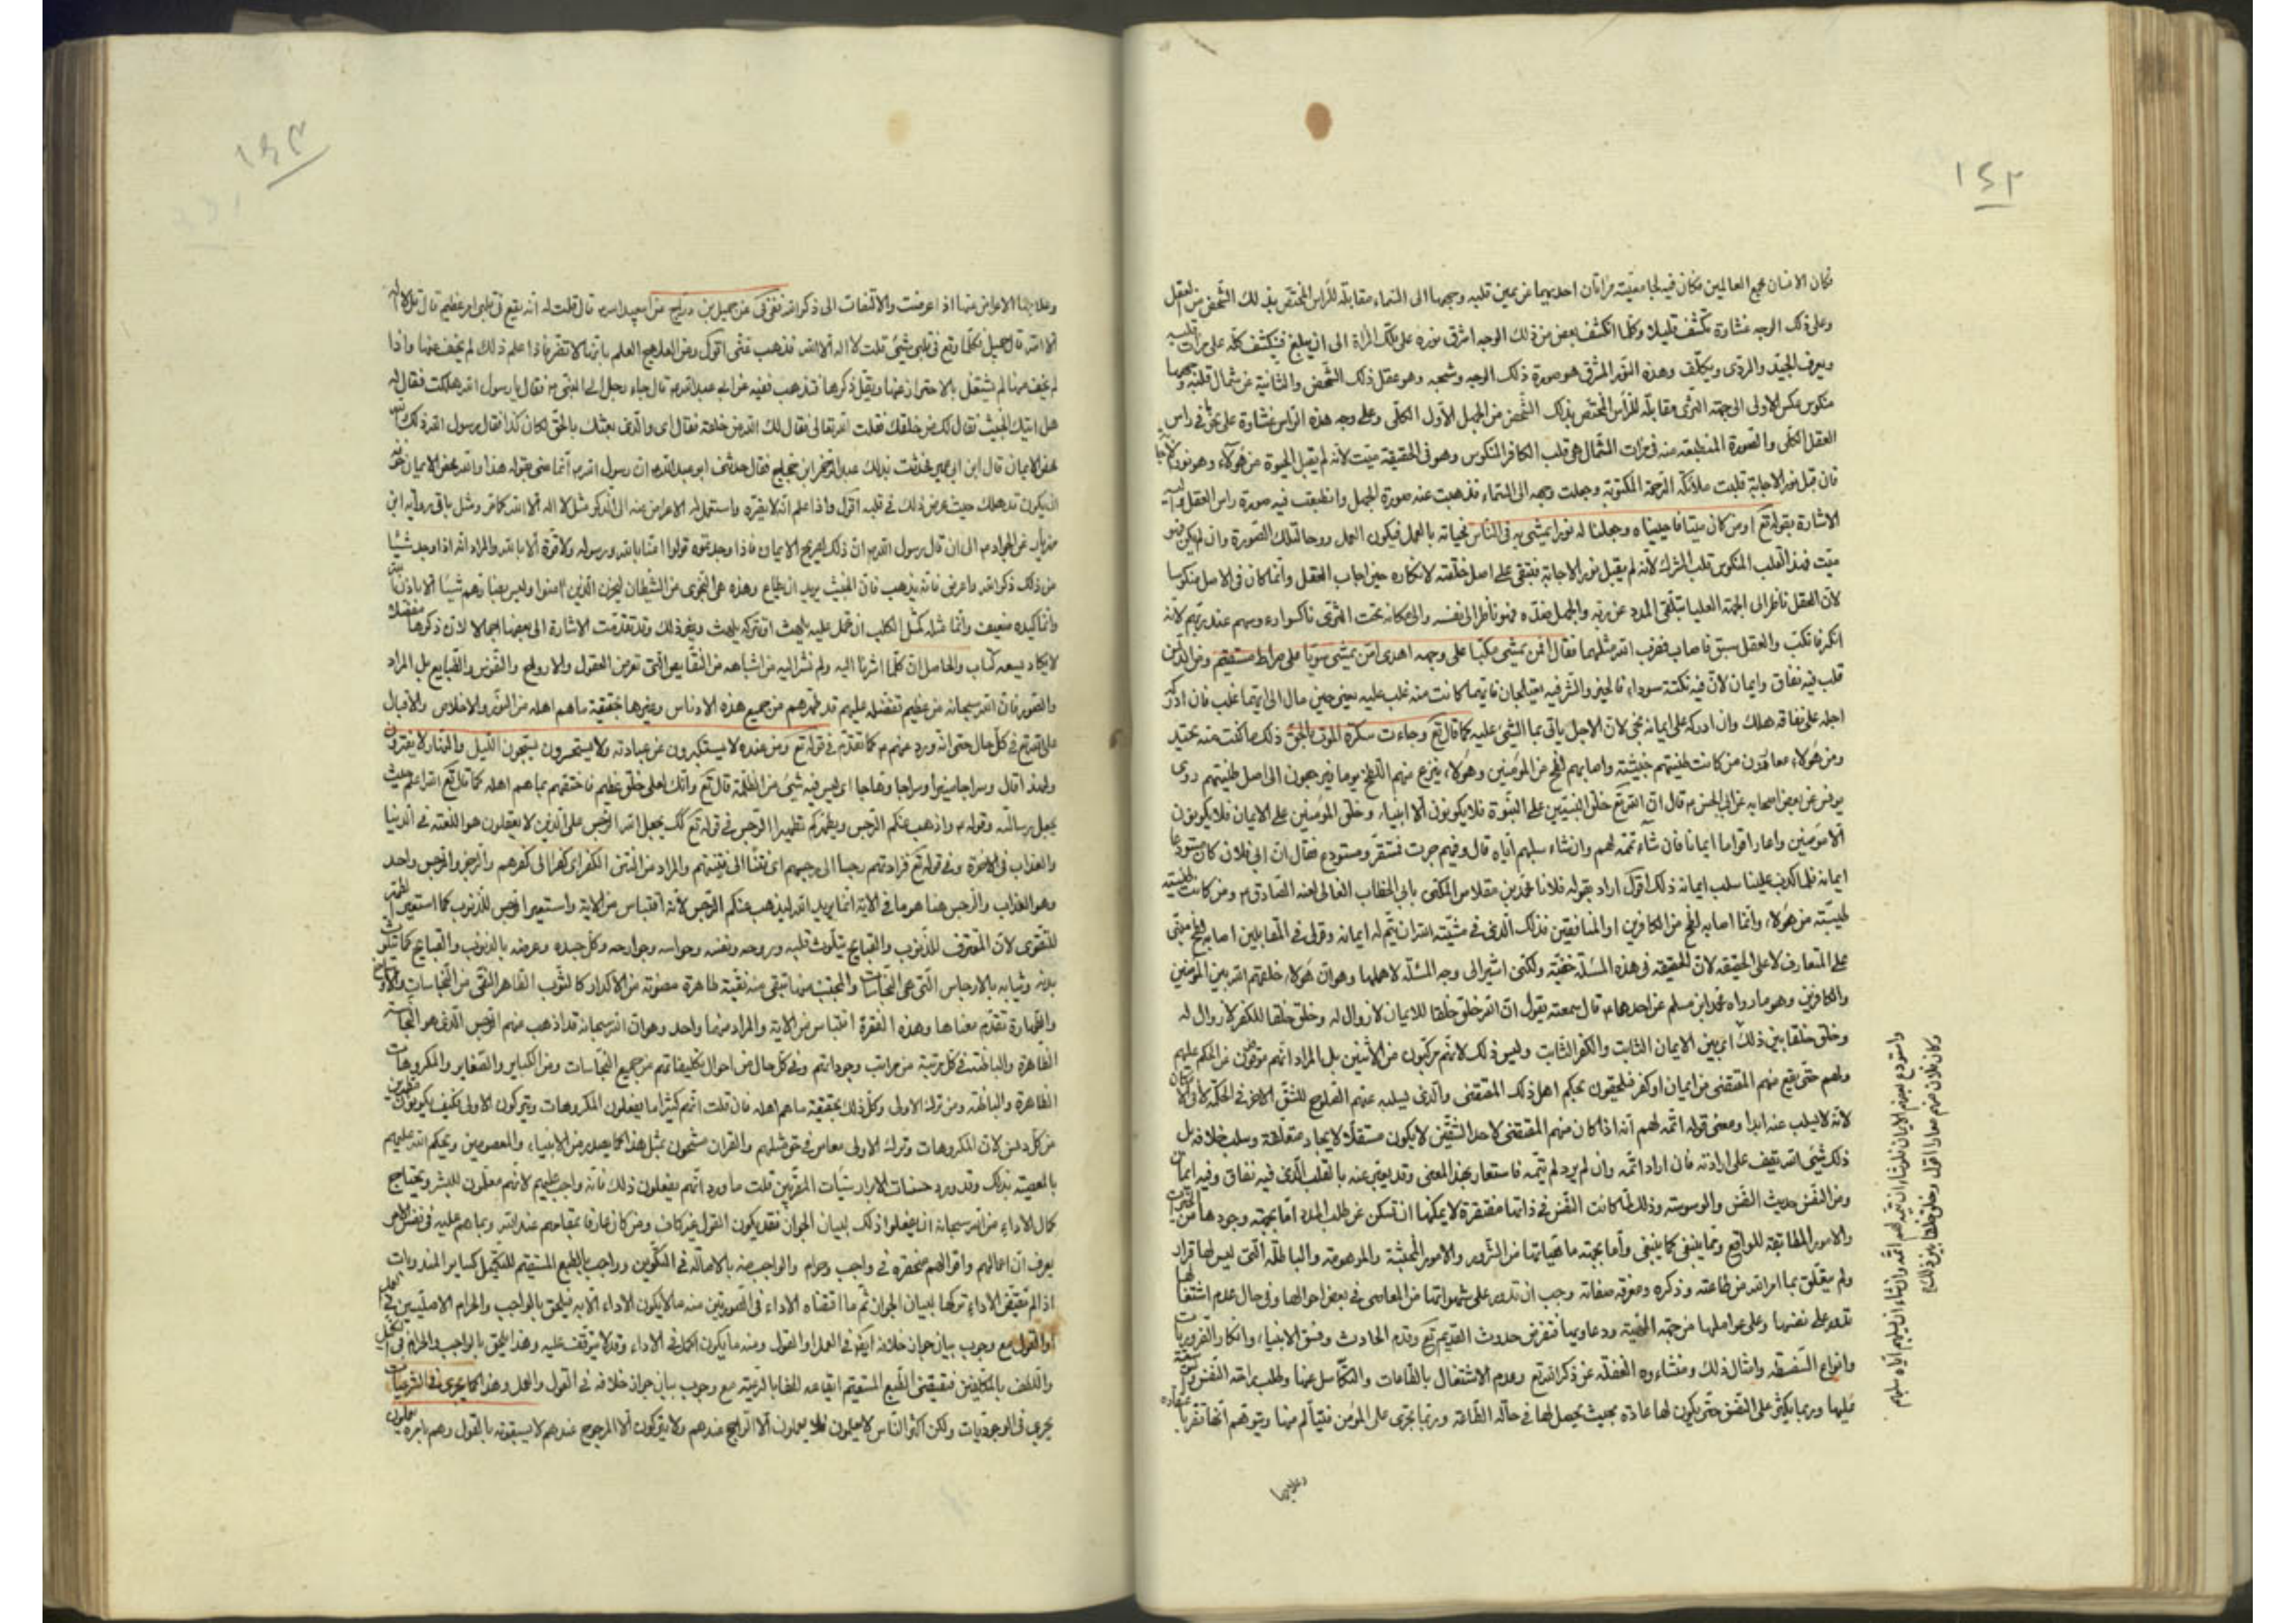 ١٤٢
فكان الانسان مجمع العالمين فكان فيه لجامعيته مرأتان احديهما عن يمين قلبه وجهها الى السماء مقابلة للرأس المختص بذلك الشخص من العقل
وعلى ذلك الوجه غشاوة تكشف قليلا وكلما انكشف بعض من ذلك الوجه اشرق نوره على تلك المرأة الى ان يبلغ فينكشف كله على مرات قلبه
ويعرف الجيد والردى ويكلف وهذه النور المشرق هو صورة ذلك الوجه وشبحه وهو عقل ذلك الشخص والثانية عن شمال قلبه وجهها
منكوس بعكس الاولى الى جهة الثرى مقابلة للرأس المختص بذلك الشخص من الجهل الاول الكلى وعلى وجه هذه الراس غشاوة على نحو ما فى راس
العقل الكلى والصورة المنطبعة منه فى مرات الشمال هى قلب الكافر المنكوس وهو فى الحقيقة ميت لانه لم يقبل الحيوة من هؤلاء وهو نور الاجابة
فان قبل نور الاجابة قلبت ملائكة الرحمة المكتوبة وجعلت وجهه الى السماء فذهبت عنه صورة الجهل وانطبعت فيه صورة راس العقل واليه
الاشارة بقوله تع اومن كان ميتا فاحييناه وجعلنا له نورا يمشى به فى الناس فحياته بالعمل فيكون العمل روحا لتلك الصورة وان لم يكن فهو
ميت فهذ القلب المنكوس قلب المشرك لانه لم يقبل نور الاجابة فبقى على اصل خلقته لانكاره حين اجاب العقل وانما كان فى الاصل منكوسا
لان العقل ناظر الى الجهة العليا يتلقى المدد عن ربه والجهل بضده فهو ناظر الى نفسه والى مكانه تحت الثرى ناكسوا رءوسهم عند ربهم لانه
انكر فانكب والعقل سبق فاصاب فضرب الله مثلهما فقال افمن يمشى مكبا على وجهه اهدى امن يمشى سويا على صراط مستقيم ومن الذين
قلب فيه نفاق وايمان لان فيه نكتة سوداء فالخير والشر فيه يعتلجان فايهما كانت منه غلب عليه يعنى حين مال الى ايهما غلب فان ادركه
اجله على نفاقه هلك وان ادركه على ايمانه نجى لان الاجل ياتى بما الشىء عليه كما قال تع وجاءت سكرة الموت بالحق ذلك ما كنت منه تحيد
ومن هؤلاء معارون من كانت طينتهم خبيثة واصابهم لطخ من المؤمنين وهؤلاء ينزع منهم اللطخ يوما فيرجعون الى اصل طينتهم روى
يونس عن بعض اصحابه عن ابى الحسن ع قال ان الله تع خلق النبيين على النبوة فلا يكونون الا انبياء وخلق المؤمنين على الايمان فلا يكونون
الا مؤمنين واعار اقواما ايمانا فان شاء تممه لهم وان شاء سلبهم اياه قال وفيهم جرت فمستقر ومستودع فقال ان فلان كان مستودعا
ايمانه فلما كذب علينا سلب ايمانه ذلك اقول اراد بقوله فلانا محمد بن مقلاص المكنى بابى الخطاب الغالى لعنه الصادق ع ومن كانت طينته
طيبته من هؤلاء وانما اصابه لطخ من الكافرين او المنافقين فذلك الذى فى مشيته الله ان يتم له ايمانه وقولى فى المقابلين اصابه لطخ مبنى
على المتعارف لا على الحقيقه لان الحقيقه فى هذه المسئلة خفية ولكنى اشير الى وجه المسئلة لاهلها وهو ان هؤلاء خلقهم الله بين المؤمنين
والكافرين وهو ما رواه محمد ابن مسلم عن احدهما ع قال سمعته يقول ان الله خلق خلقا للايمان لا زوال له وخلق خلقا للكفر لا زوال له
وخلق خلقا بين ذلك اى بين الايمان الثابت والكفر الثابت وليس ذلك لانهم مركبون من الاثنين بل المراد انهم موقوفون عن الحكم عليهم
ولهم حتى يقع منهم المقتضى من ايمان او كفر فيلحقون بحكم اهل ذلك المقتضى والذى يسلبه عنهم الصلوح للشق الاخر فى الحكمة لا فى الامكان
لانه لا يسلب عنه ابدا ومعنى قوله اتمه لهم انه اذا كان منهم المقتضى لاحد الشقين لا يكون مستقلا لايجاد متعلقه وسلب خلافه بل
ذلك شىء لله تقف على ارادته فان اراد اتمه وان لم يرد لم يتمه فاستعار بهذ المعنى وقد يعبر عنه بالقلب الذى فيه نفاق وفيه ايمان
ومن النفس حديث النفس والوسوسة وذلك لما كانت النفس فى ذاتها مفتقرة لا يمكنها ان تسكن عن طلب المدد اما بجهته وجودها من
والامور المطابقة للواقع وبما ينبغى كما ينبغى واما بجهة ماهياتها من الشرور والامور المجتثة والموهومة والباطلة التى ليس لها قرار
ولم يتعلق بما امر الله من طاعته وذكره ومعرفه صفاته وجب ان تدور على شهواتها من المعاصى فى بعض احوالها وفى حال عدم اشتغالها
تدور على نفسها وعلى عواملها من جهة الخفية ودعاويها فتفرض حدوث القديم تع وقدم الحادث وفسق الانبياء وانكار الضروريات
وانواع السفسطه وامثال ذلك ومنشاءوه الغفلة عن ذكر الله تع وعدم الاشتغال بالطاعات والتكاسل عنها وطلب راحة النفس
عليها وربما يكثر على النفس حتى يكون لها عادة بحيث يحصل لها فى حالة الطاعة وربما يجرى على المؤمن فيتألم منها ويتوهم انها تضر باعتقاده
وعلاجها
واستودع بعضهم الايمان فان شاء ان يتمه لهم اتمه وان شاء ان يسلبهم اياه سلبهم
وكان فلان منهم معارا اقول وخلق خلقا بين ذلك
١٤٣
وعلاجها الاعراض عنها اذا عرضت والالتفات الى ذكر الله ففى عن جميل بن دراج عن ابيعبد الله ع قال قلت له انه يقع فى قلبى امر عظيم قال قل لا اله
الا الله قال جميل فكلما وقع فى قلبى شىء قلت لا اله الا الله فذهب عنى اقول ومن العلاج العلم بانها لا تضر فاذا علم ذلك لم يخف منها واذا
لم يخف منها لم يشتغل بالاحتراز عنها ويقل ذكرها فتذهب فعنه عن ابى عبد الله ع قال جاء رجل الى النبى ص فقال يا رسول الله هلكت فقال له
هل اتيك الخبيث فقال لك من خلقك فقلت الله تعالى فقال لك الله من خلقه فقال اى والذى بعثك بالحق لكان كذا فقال رسول الله ذلك والله
محض الايمان قال ابن ابى عمير فحدثت بذلك عبد الرحمن ابن حجاج فقال حدثنى ابو عبد الله ع ان رسول الله ص انما عنى بقوله هذا والله محض الايمان خوفه
ان يكون قد هلك حيث عرض ذلك فى قلبه اقول واذا علم انه لا يضره واستعمل له الاعراض عنه الى الذكر مثل لا اله الا الله كما مر ومثل باقى رواية ابن
مهزيار عن الجواد ع الى ان قال رسول الله ص ان ذلك لصريح الايمان فاذا وجدتموه قولوا امنا بالله ورسوله ولا قوة الا بالله والمراد انه اذا وجد شيئا
من ذلك ذكر الله واعرض فانه يذهب فان الخبيث يريد ان يطاع وهذه هى النجوى من الشيطان ليحزن الذين امنوا وليس بضارهم شيئا الا باذن الله
وانما كيده ضعيف وانما مثله كمثل الكلب ان تحمل عليه يلهث او تتركه يلهث ونحو ذلك وقد تقدمت الاشارة الى بعضها اجمالا لان ذكرها مفصلا
لا يكاد يسعه كتاب والحاصل ان كلما اشرنا اليه ولم نشر اليه من اشباهه من النقايص التى تعرض العقول والارواح والنفوس والطبايع بل المواد
والصور فان الله سبحانه من عظيم تفضله عليهم قد طهرهم من جميع هذه الادناس وغيرها بحقيقة ما هم اهله من النور والاخلاص والاقبال
على الله تع فى كل حال حتى انه ورد عنهم ع كما تقدم فى قوله تع ومن عنده لا يستكبرون عن عبادته ولا يستحسرون يسبحون الليل والنهار لا يفترون
ولهذ اقال وسراجا منيرا وسراجا وهاجا اى ليس فيه شىء من الظلمة قال تع وانك لعلى خلق عظيم فاختصهم بما هم اهله كما قال تع الله اعلم حيث
يجعل رسالته وقوله ع واذهب عنكم الرجس ويطهركم تطهيرا الرجس فى قوله تع كك يجعل الله الرجس على الذين لا يعقلون هو اللعنة فى الدنيا
والعذاب فى الاخرة وفى قوله تع فزادتهم رجسا الى رجسهم اى نتنا الى نتنهم والمراد من النتن الكفر اى كفرا الى كفرهم والرجز والرجس واحد
وهو العذاب والرجس هنا هو ما فى الاية انما يريد الله ليذهب عنكم الرجس لانه اقتباس من الاية واستعير الرجس للذنوب كما استعير الطهر
للتقوى لان المقترف للذنوب والقبايح يتلوث قلبه وروحه ونفسه وحواسه وجوارحه وكل جسده وعرضه بالذنوب والقبايح كما يتلوث
بدنه وثيابه بالارجاس التى هى النجاسات والمجتنب عنها تبقى منه نقية طاهرة مصونة من الاكدار كالثوب الطاهر النقى من النجاسات والاوساخ
والطهارة تقدم معناها وهذه الفقرة اقتباس من الاية والمراد منهما واحد وهو ان الله سبحانه قد اذهب منهم الرجس الذى هو النجاسة
الظاهرة والباطنة فى كل مرتبة من مراتب وجوداتهم وفى كل حال من احوال تكليفاتهم من جميع النجاسات ومن الكباير والصغاير والمكروهات
الظاهرة والباطنة ومن ترك الاولى وكل ذلك بحقيقة ما هم اهله فان قلت انهم كثيرا ما يفعلون المكروهات ويتركون الاولى فكيف يكونون مطهرين
من كل دنس لان المكروهات وترك الاولى معاص فى حق مثلهم والقران مشحون بمثل هذا كما يصدر من الانبياء والمعصومين ويحكم الله عليهم
بالمعصية بذلك وقد ورد حسنات الابرار سيئات المقربين قلت ما ورد انهم يفعلون ذلك فانه واجب عليهم لانهم معلمون للبشر ويحتاج
كمال الاداء من الله سبحانه ان يفعلوا ذلك لبيان الجواز فقد يكون القول غير كاف ومن كان عارفا بمقامهم عند الله وبما هم عليه فى نفس الامر
يعرف ان اعمالهم واقوالهم منحصره فى واجب وحرام والواجب منه بالاصالة فى التكوين وواجب بالطبع المستقيم للتكميل كساير المندوبات
اذا لم تقتض الاداء تركها لبيان الجواز ثم ما اقتضاه الاداء فى الصورتين منه ما لا يكون الاداء الا به فيلحق بالواجب والحرام الاصليين فى العلم
او القول مع وجوب بيان جواز خلافه ايضا فى العمل او القول ومنه ما يكون اكمل فى الاداء وقد لا يتوقف عليه وهذا يلحق بالواجب والحرام فى التكميل
واللطف بالمكلفين فيقتضى الطبع المستقيم ايقاعه للطفا بالرعية مع وجوب بيان جواز خلافه فى القول والعمل وهذا كما يجرى فى الشرعيات
يجرى فى الوجوديات ولكن اكثر الناس لا يعلمون فلا يعملون الا الراجح عندهم ولا يتركون الا المرجوح عندهم لا يسبقونه بالقول وهم بامره يعملون